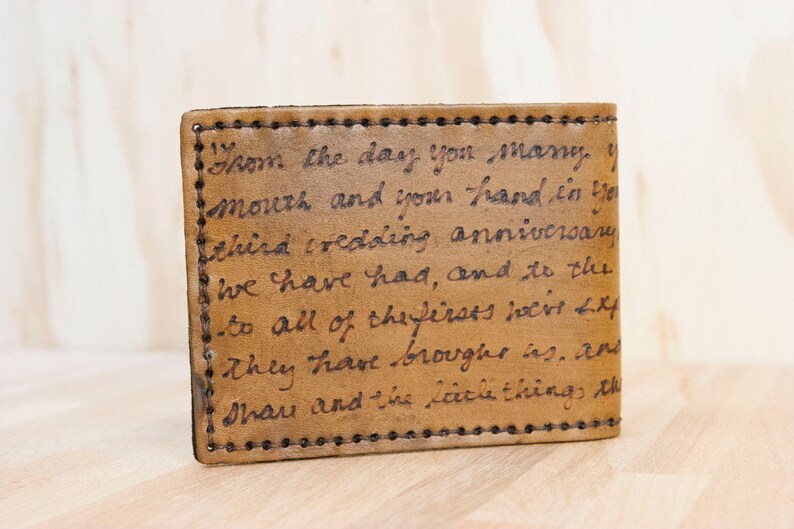 "From the day you marry y
mouth and your hand in you
third wedding anniversary,
we have had, and to the
to all of the firsts we've exp
they have brought us, and
share and the little things th